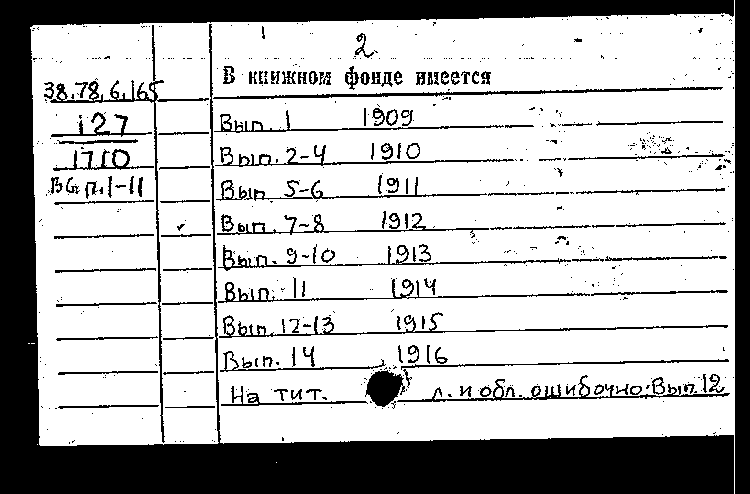 2
В книжном фонде имеется
38.78.6.165
127
1710
Вып. 1 1909
Вып. 2-4 1910
Вып 5-6 1911
Вып. 7-8 1912
Вып. 9-10 1913
Вып. 11 1914
Вып. 12-13 1915
Вып. 14 1916
На тит. л. и обл. ошибочно: Вып. 12